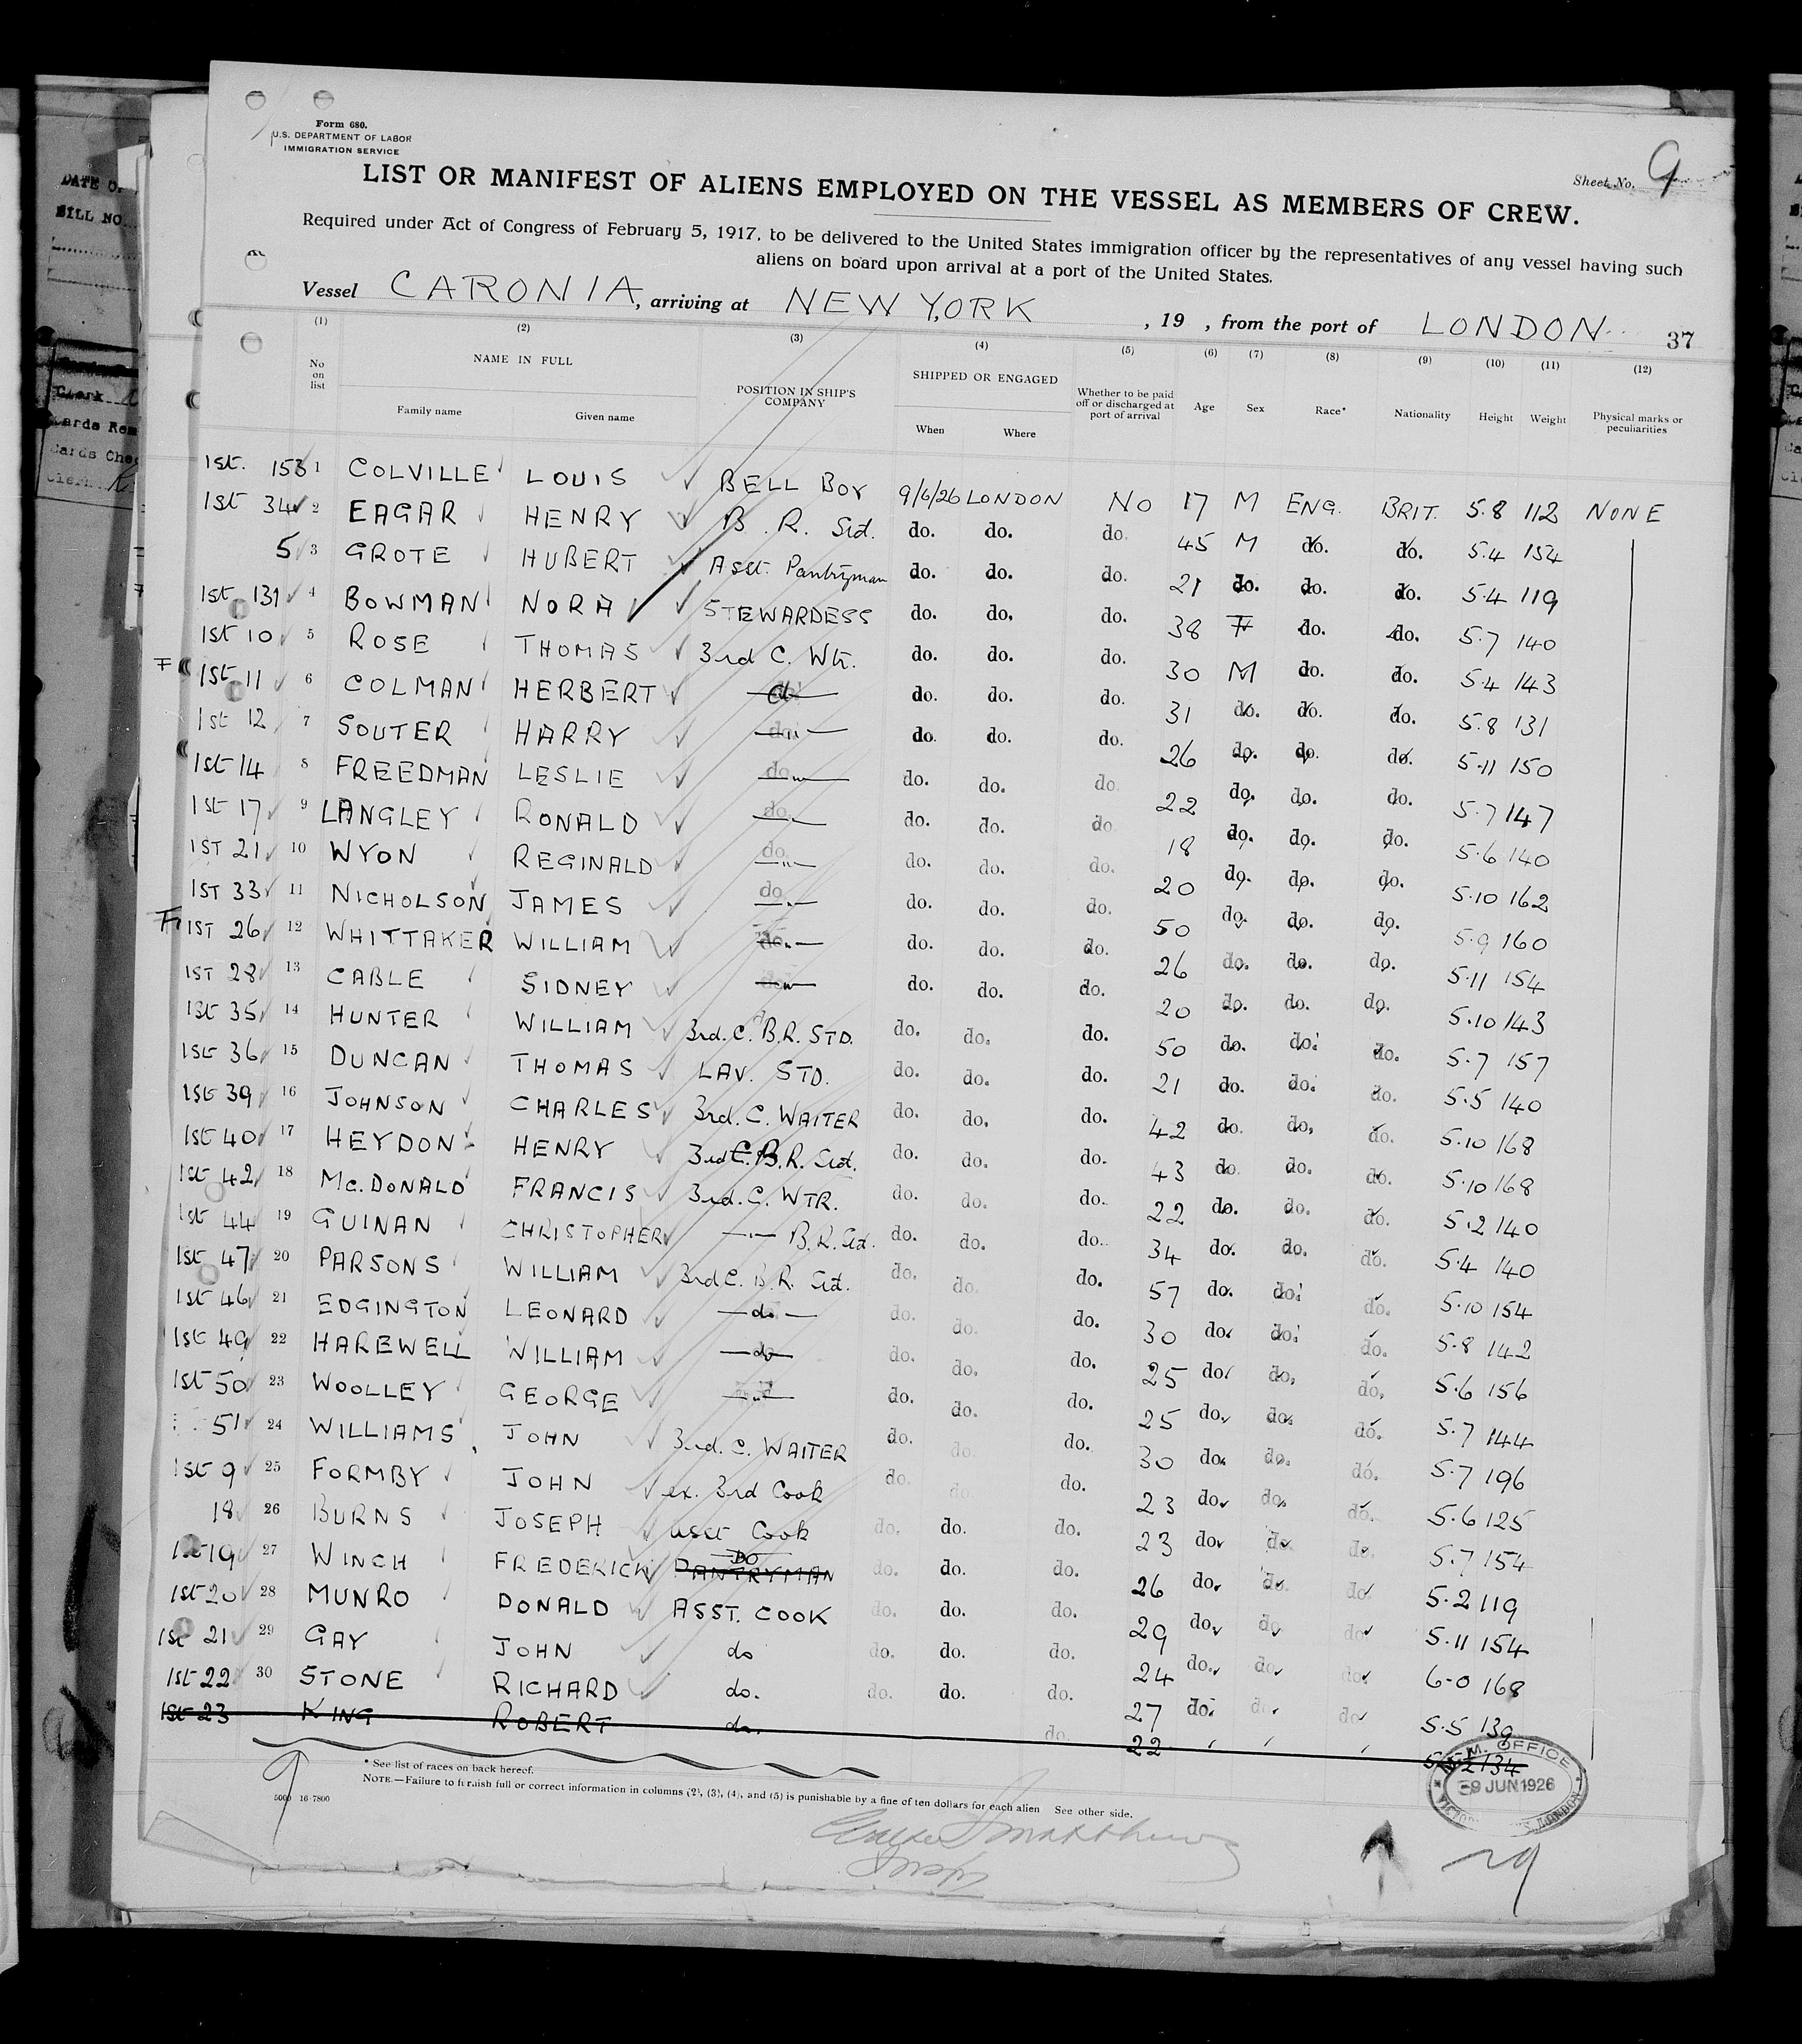 Form 680.
U.S. DEPARTMENT OF LABOR
IMMIGRATION SERVICE
Sheet No. 9
LIST OR MANIFEST OF ALIENS EMPLOYED ON THE VESSEL AS MEMBERS OF CREW.
Required under Act of Congress of February 5, 1917, to be delivered to the United States immigration officer by the representatives of any vessel having such
aliens on board upon arrival at a port of the United States.
Vessel CARONIA, arriving at NEW YORK , 19 , from the port of LONDON 37
(1) (2) (3) (4) (5) (6) (7) (8) (9) (10) (11) (12)
No on list NAME IN FULL Family name Given name POSITION IN SHIP'S COMPANY SHIPPED OR ENGAGED When Where Whether to be paid off or discharged at port of arrival Age Sex Race* Nationality Height Weight Physical marks or peculiarities
1st. 153 1 COLVILLE LOUIS BELL BOY 9/6/26 LONDON NO 17 M ENG. BRIT. 5.8 112 NONE
1st 34 2 EAGAR HENRY B.R. Std. do. do. do. 45 M do. do. 5.4 154
5 3 GROTE HUBERT Asst. Pantryman do. do. do. 21 do. do. do. 5.4 119
1st 131 4 BOWMAN NORA STEWARDESS do. do. do. 38 F do. do. 5.7 140
1st 10 5 ROSE THOMAS 3rd C. Wtr. do. do. do. 30 M do. do. 5.4 143
1st 11 6 COLMAN HERBERT do do. do. do. 31 do. do. do. 5.8 131
1st 12 7 SOUTER HARRY do. do. do. do. 26 do. do. do. 5.11 150
1st 14 8 FREEDMAN LESLIE do. do. do. do. 22 do. do. do. 5.7 147
1st 17 9 LANGLEY RONALD do. do. do. do. 18 do. do. do. 5.6 140
1ST 21 10 WYON REGINALD do. do. do. do. 20 do. do. do. 5.10 162
1ST 33 11 NICHOLSON JAMES do. do. do. do. 50 do. do. do. 5.9 160
1ST 26 12 WHITTAKER WILLIAM do. do. do. do. 26 do. do. do. 5.11 154
1ST 28 13 CABLE SIDNEY do. do. do. 20 do. do. do. 5.10 143
1st 35 14 HUNTER WILLIAM 3rd.C.B.R. STD. do. do. do. 50 do. do. do. 5.7 157
1st 36 15 DUNCAN THOMAS LAV. STD. do. do. do. 21 do. do. do. 5.5 140
1st 39 16 JOHNSON CHARLES 3rd.C. WAITER do. do. do. 42 do. do. do. 5.10 168
1st 40 17 HEYDON HENRY 3rd C.B.R. Std. do. do. do. 43 do. do. do. 5.10 168
1st 42 18 Mc.DONALD FRANCIS 3rd.C. WTR. do. do. do. 22 do. do. do. 5.2 140
1st 44 19 GUINAN CHRISTOPHER —"— B.R. Std. do. do. do. 34 do. do. do. 5.4 140
1st 47 20 PARSONS WILLIAM 3rd C. B.R. Std. do. do. do. 57 do. do. do. 5.10 154
1st 46 21 EDGINGTON LEONARD —do— do. do. do. 30 do. do. do. 5.8 142
1st 49 22 HAREWELL WILLIAM —do— do. do. do. 25 do. do. do. 5.6 156
1st 50 23 WOOLLEY GEORGE —"— do. do. do. 25 do. do. do. 5.7 144
51 24 WILLIAMS JOHN 3rd. C. WAITER do. do. do. 30 do. do. do. 5.7 196
1st 9 25 FORMBY JOHN ex. 3rd Cook do. do. do. 23 do. do. do. 5.6 125
18 26 BURNS JOSEPH asst Cook do. do. do. 23 do. do. do. 5.7 154
1st 19 27 WINCH FREDERICK PANTRYMAN DO do. do. do. 26 do. do. do. 5.2 119
1st 20 28 MUNRO DONALD ASST. COOK do. do. do. 29 do. do. do. 5.11 154
1st 21 29 GAY JOHN do do. do. do. 24 do. do. do. 6-0 168
1st 22 30 STONE RICHARD do. do. do. do. 27 do. do. do. 5.5 139
1st 23 KING ROBERT do. do. 22 134
* See list of races on back hereof.
NOTE.—Failure to furnish full or correct information in columns (2), (3), (4), and (5) is punishable by a fine of ten dollars for each alien See other side.
5000 16-7800
M. OFFICE
9 JUN 1926
LONDON
29